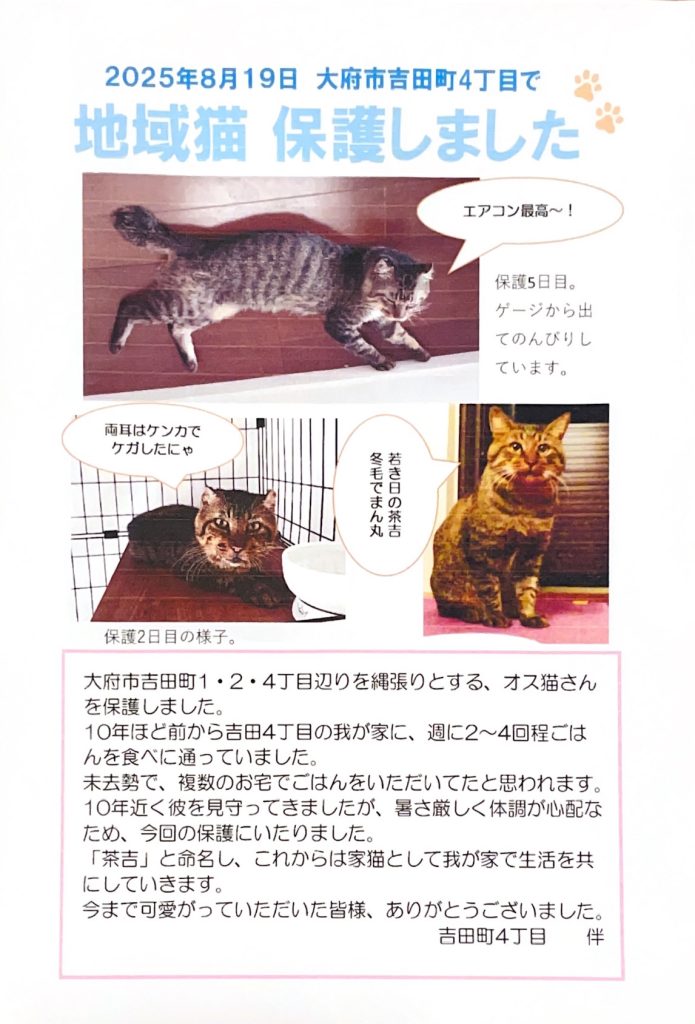 2025年8月19日 大府市吉田町4丁目で
地域猫 保護しました
エアコン最高～！
保護5日目。
ゲージから出
てのんびりし
ています。
両耳はケンカで
ケガしたにゃ
若き日の茶吉
冬毛でまん丸
保護2日目の様子。
大府市吉田町1・2・4丁目辺りを縄張りとする、オス猫さん
を保護しました。
10年ほど前から吉田4丁目の我が家に、週に2～4回程ごは
んを食べに通っていました。
未去勢で、複数のお宅でごはんをいただいてたと思われます。
10年近く彼を見守ってきましたが、暑さ厳しく体調が心配な
ため、今回の保護にいたりました。
「茶吉」と命名し、これからは家猫として我が家で生活を共
にしていきます。
今まで可愛がっていただいた皆様、ありがとうございました。
吉田町4丁目 伴